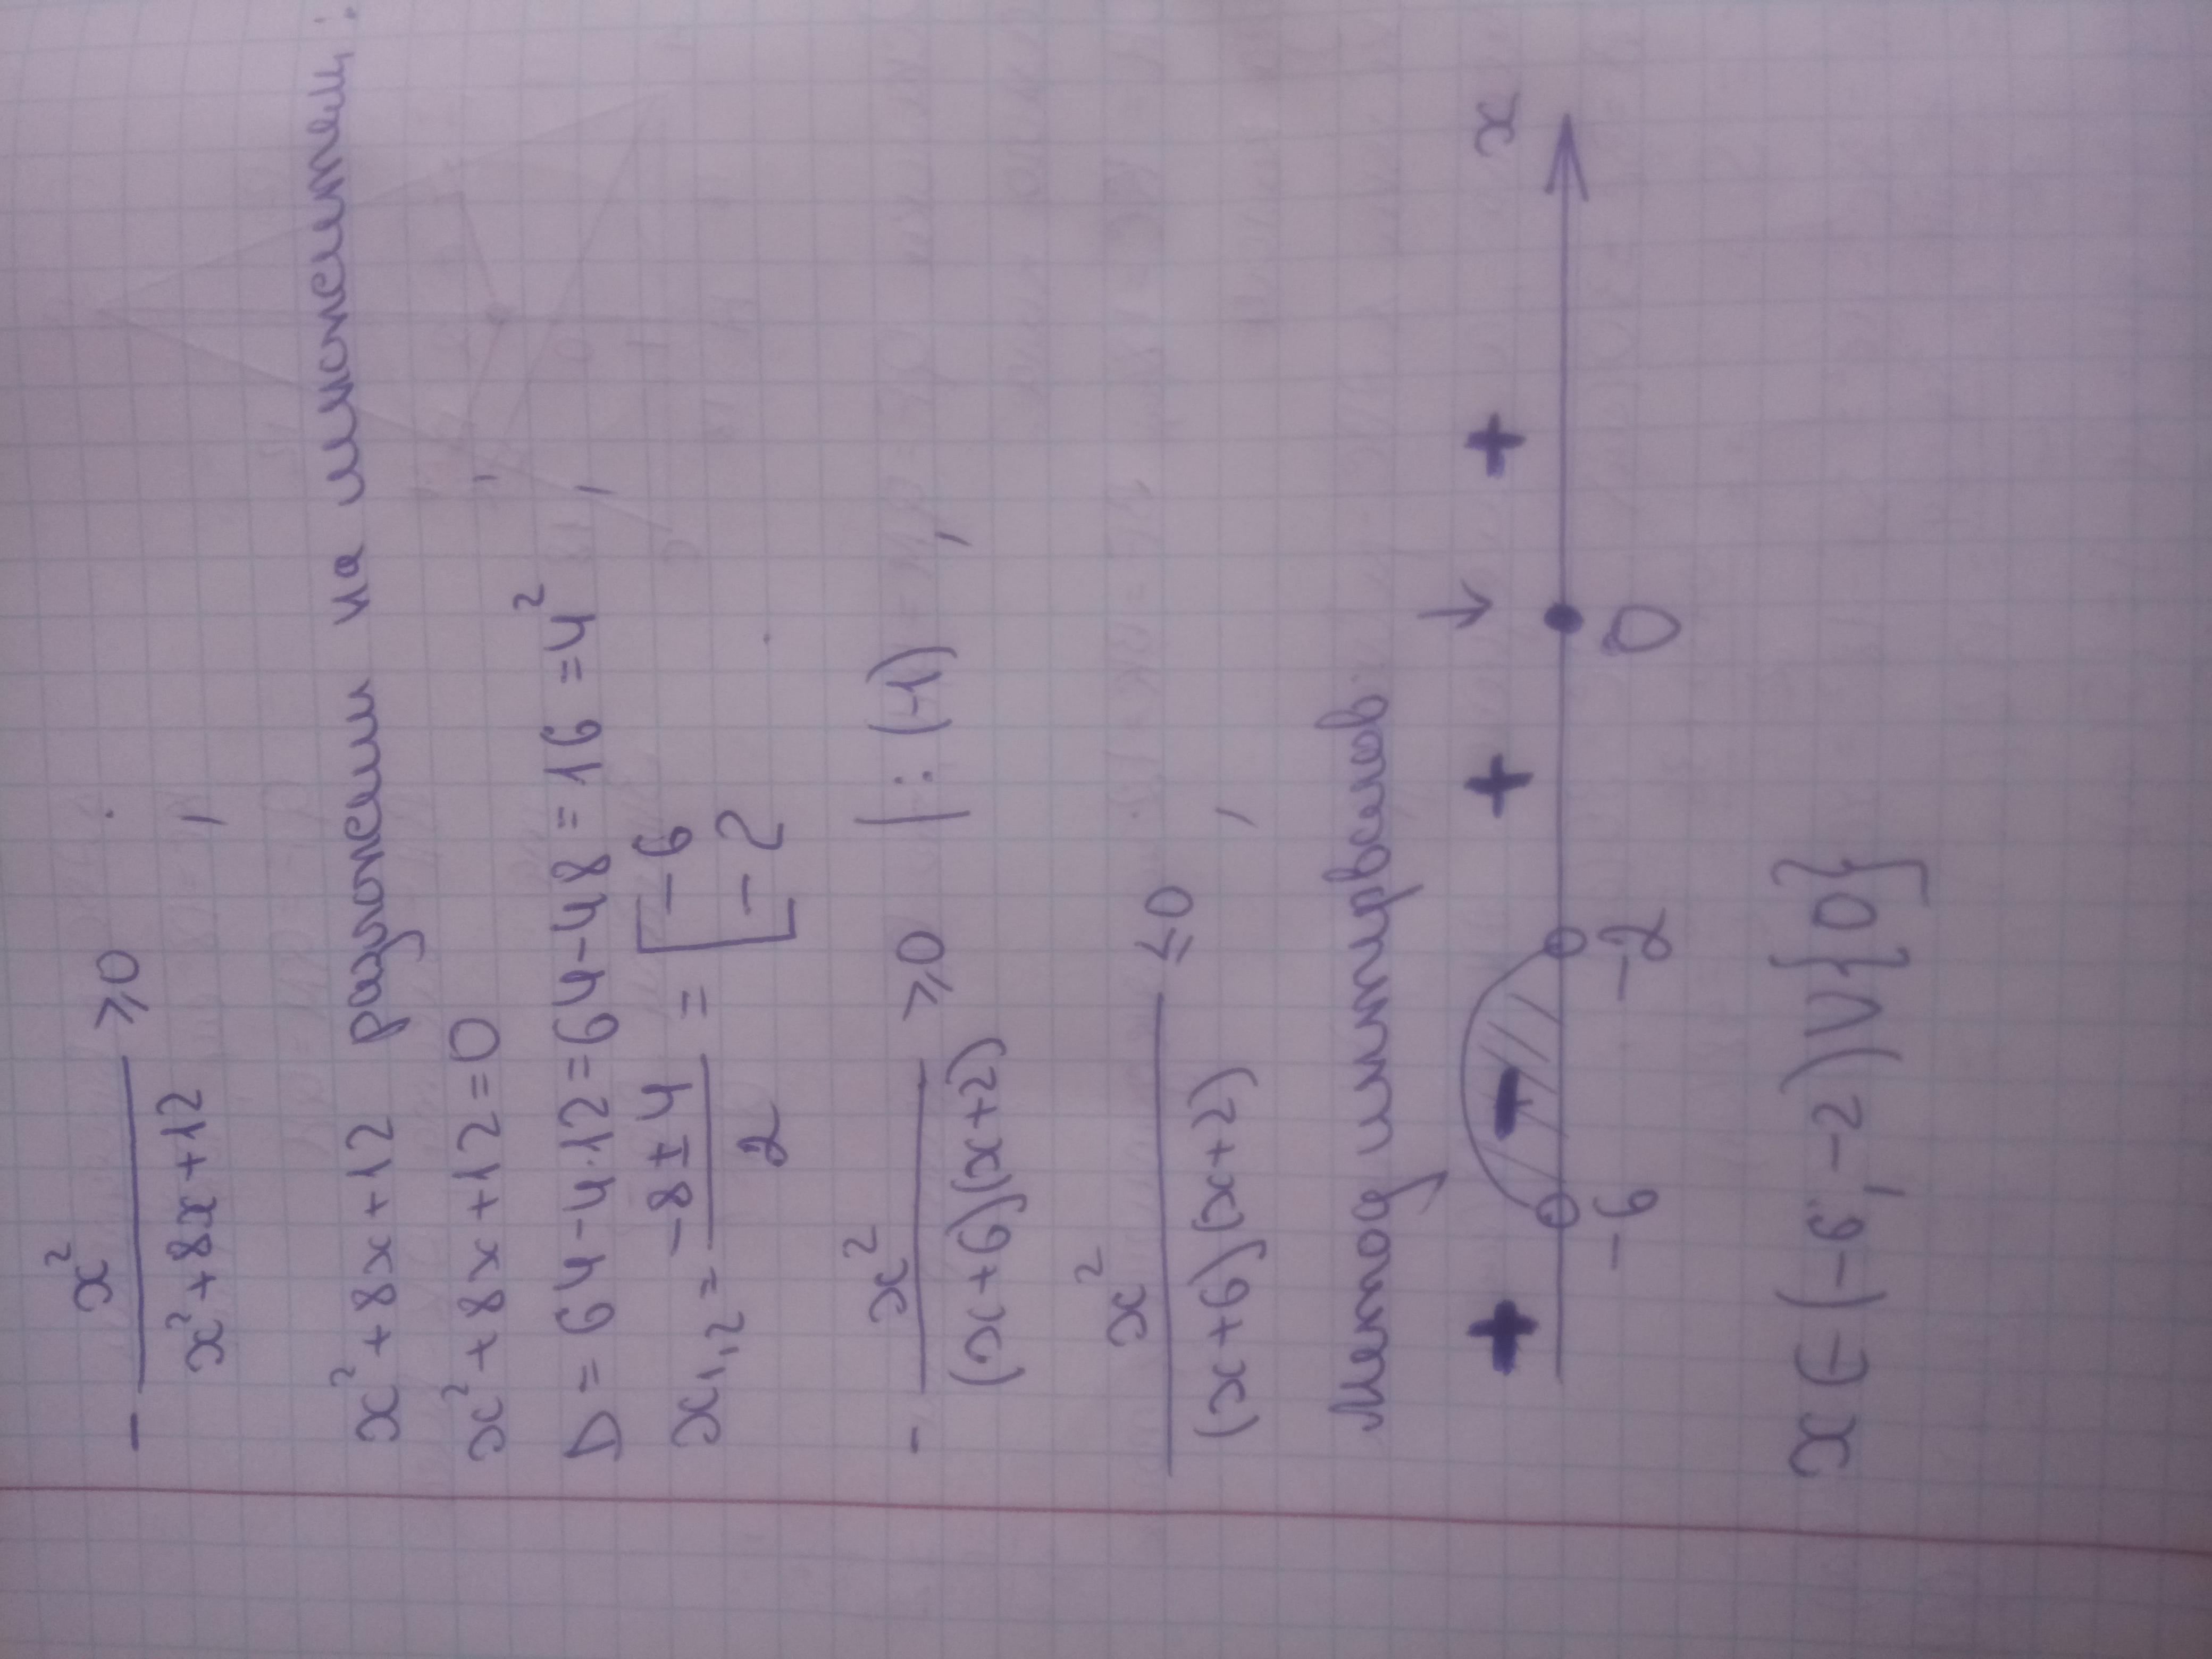 - x² / (x² + 8x + 12) ⩾ 0 ,
x² + 8x + 12 разложим на множители:
x² + 8x + 12 = 0 ,
D = 64 - 4·12 = 64 - 48 = 16 = 4² ,
x₁,₂ = (-8 ± 4) / 2 = [ -6
-2 .
- x² / ((x+6)(x+2)) ⩾ 0 | : (-1) ,
x² / ((x+6)(x+2)) ≤ 0 ,
Метод интервалов:
+ - + ↓ + x
-6 -2 0
x ∈ (-6; -2) ∪ {0}